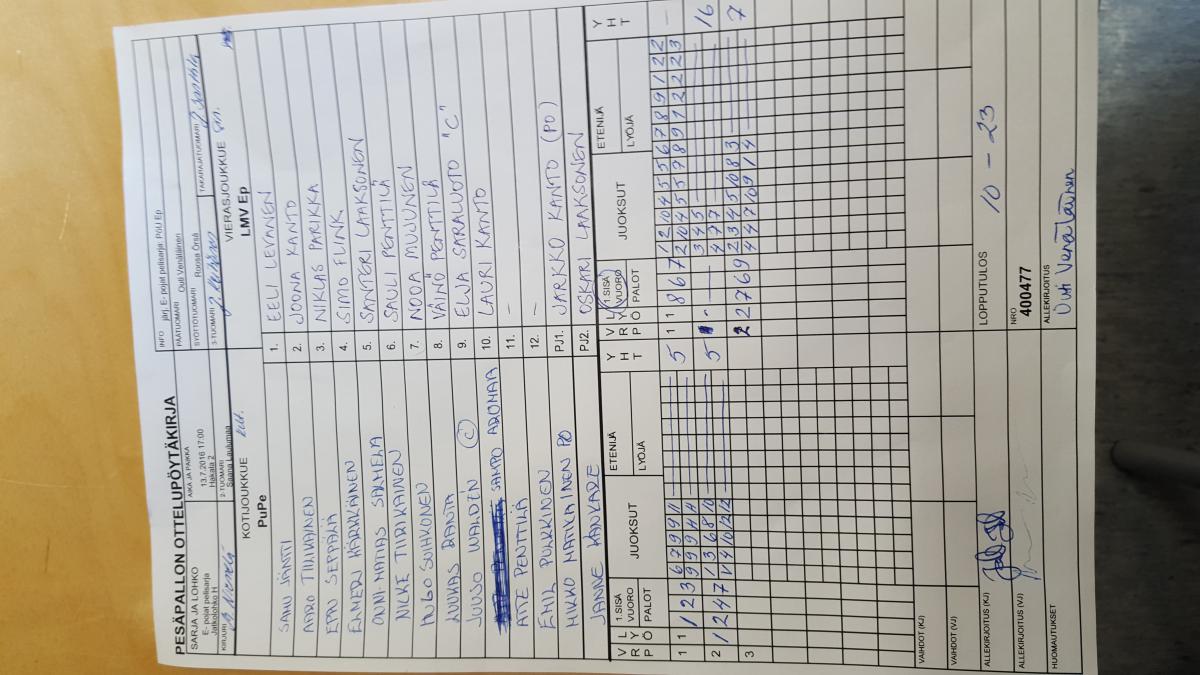 PESÄPALLON OTTELUPÖYTÄKIRJA
SARJA JA LOHKO
E- pojat pelisarja
Jatkolohko H
AIKA JA PAIKKA
13.7.2016 17:00
Hakala 2
INFO järj. E- pojat pelisarja: PöU Ep
PÄÄTUOMARI Outi Venäläinen
SYÖTTÖTUOMARI Roosa Örså
KIRJURI
2-TUOMARI Saana Laulumaa
3-TUOMARI
TAKARAJATUOMARI
KOTIJOUKKUE
PuPe
VIERASJOUKKUE
LMV Ep
SAMU JÄNTTI 1. EELI LEVANEN
AARO TIILIKAINEN 2. JOONA KANTO
EPPU SEPPÄNÄ 3. NIKLAS PARIKKA
ELMERI KÄRKKÄINEN 4. SIMO FLINK
ONNI-MATIAS SALMELA 5. SANTERI LAAKSONEN
NICKE TIIRIKAINEN 6. SAULI PENTTILÄ
HUGO SUIKKONEN 7. NOOA MUJUNEN
LUUKAS RANTA 8. VÄINÖ PENTTILÄ
JUUSO WALDÉN (C) 9. ELJA SARALUOTO "C"
SAMPO AROMAA 10. LAURI KANTO
ATTE PENTTILÄ 11. –
EMIL PURKKINEN 12. –
MIKKO MATIKAINEN PO PJ1. JARKKO KANTO (PO)
JANNE KANKARE PJ2. OSKARI LAAKSONEN
VRP LYÖ 1.SISÄ VUORO PALOT JUOKSUT ETENIJÄ LYÖJÄ YHT
VRP LYÖ 1.SISÄ VUORO PALOT JUOKSUT ETENIJÄ LYÖJÄ YHT
1 1 1 2 3 6 7 9 9 11 5 1 1 8 6 7 1 2 10 4 5 5 6 7 8 9 1 2 2 –
9 9 9 4 4 2 10 4 5 5 7 8 9 1 2 2 2 3
2 1 2 4 7 1 3 6 8 10 5 3 4 5 16
4 10 12 12 4 7 7
3 2 2 7 6 9 2 3 4 5 10 8 3 7
4 4 7 10 9 1 4
VAIHDOT (KJ)
VAIHDOT (VJ)
LOPPUTULOS 10 – 23
ALLEKIRJOITUS (KJ)
ALLEKIRJOITUS (VJ)
NRO
400477
HUOMAUTUKSET
ALLEKIRJOITUS
Outi Venäläinen